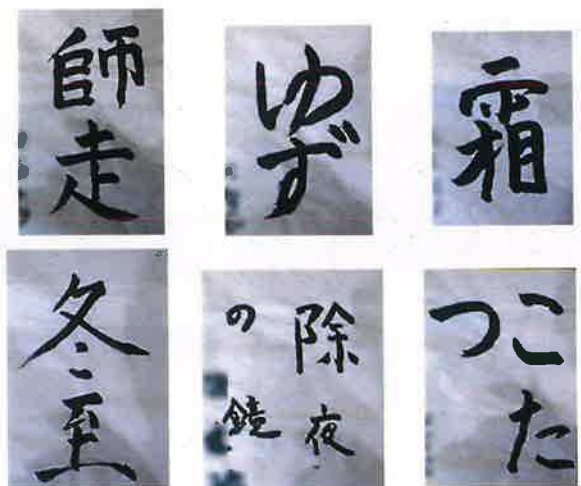 師走
ゆず
霜
冬至
除夜
の鏡
こた
つ